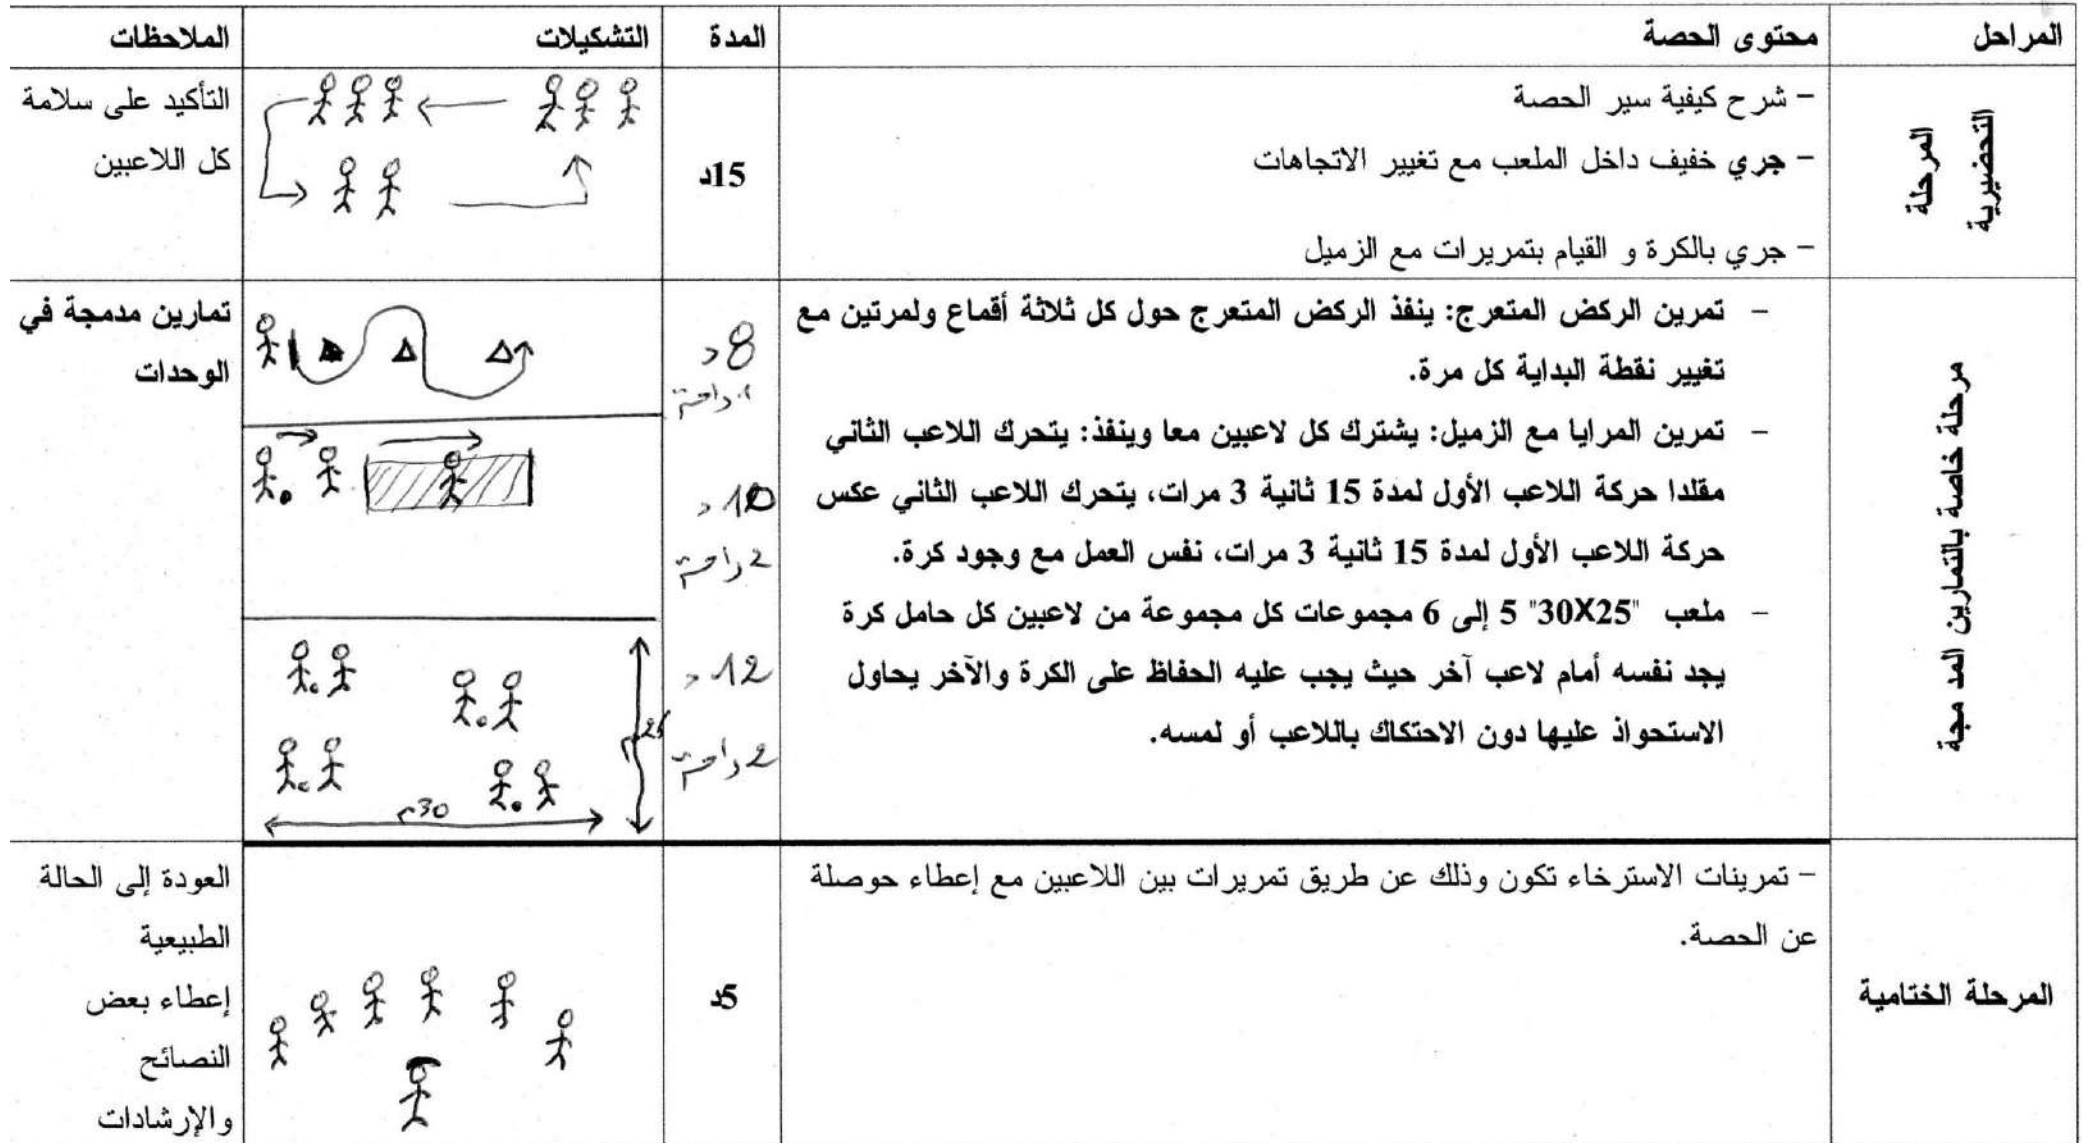 المراحل
محتوى الحصة
المدة
التشكيلات
الملاحظات
المرحلة
التحضيرية
– شرح كيفية سير الحصة
– جري خفيف داخل الملعب مع تغيير الاتجاهات
– جري بالكرة و القيام بتمريرات مع الزميل
15د
التأكيد على سلامة
كل اللاعبين
مرحلة خاصة بالتمارين المد مجة
– تمرين الركض المتعرج: ينفذ الركض المتعرج حول كل ثلاثة أقماع ولمرتين مع
تغيير نقطة البداية كل مرة.
– تمرين المرايا مع الزميل: يشترك كل لاعبين معا وينفذ: يتحرك اللاعب الثاني
مقلدا حركة اللاعب الأول لمدة 15 ثانية 3 مرات، يتحرك اللاعب الثاني عكس
حركة اللاعب الأول لمدة 15 ثانية 3 مرات، نفس العمل مع وجود كرة.
– ملعب "30X25" 5 إلى 6 مجموعات كل مجموعة من لاعبين كل حامل كرة
يجد نفسه أمام لاعب آخر حيث يجب عليه الحفاظ على الكرة والآخر يحاول
الاستحواذ عليها دون الاحتكاك باللاعب أو لمسه.
8د
راحة
10د
2د راحة
12د
2د راحة
30م
تمارين مدمجة في
الوحدات
المرحلة الختامية
– تمرينات الاسترخاء تكون وذلك عن طريق تمريرات بين اللاعبين مع إعطاء حوصلة
عن الحصة.
5د
العودة إلى الحالة
الطبيعية
إعطاء بعض
النصائح
والإرشادات